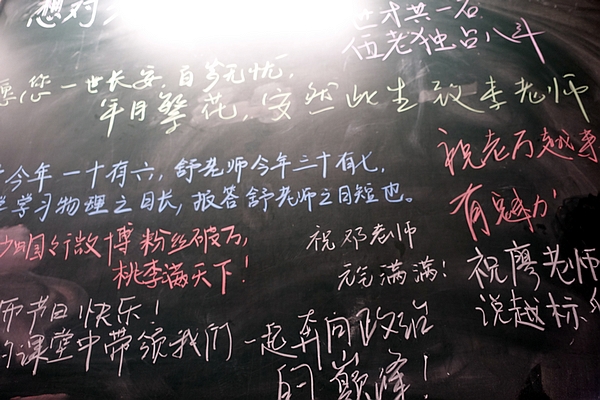 想对
世才共一石
伍老独占八斗
愿您一世长安，百岁无忧，
年月簪花，安然此生 致李老师
今年一十有六，舒老师今年三十有七，
学习物理之日长，报答舒老师之日短也。
祝老万越来
有魅力
国行微博粉丝破万，
桃李满天下！
祝邓老师
元气满满！
祝廖老师
说越标
师节日快乐！
的课堂中带领我们一起奔向政治
的巅峰！